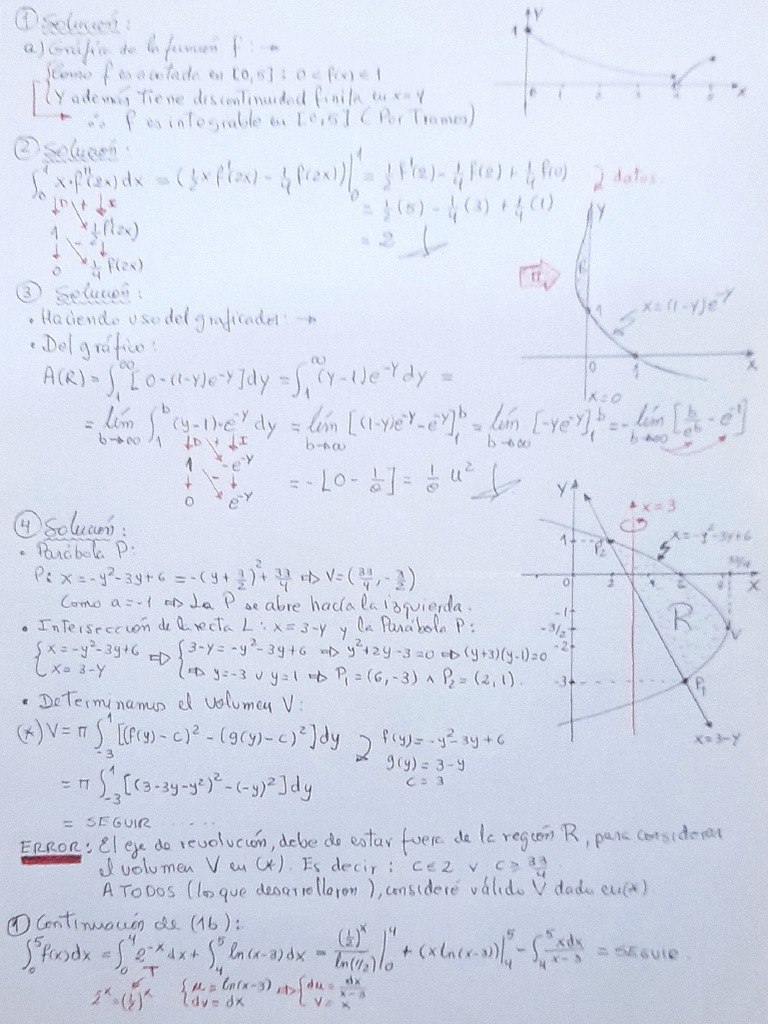 ① Solución:
a) Gráfica de la función f: →
Como f es acotada en [0,5] : 0 < f(x) < 1
Y además tiene discontinuidad finita en x=4
∴ f es integrable en [0,5] (Por Tramos)
Y
1
0 1 2 3 4 5 X
② Solución:
∫₀¹ x·f''(2x)dx = (½xf'(2x) - ¼f(2x))|₀¹ = ½f'(2) - ¼f(2) + ¼f(0) datos
= ½(5) - ¼(3) + ¼(1)
= 2
D + I
1 - ½f'(2x)
0 ¼f(2x)
③ Solución:
• Haciendo uso del graficador: →
• Del gráfico:
A(R) = ∫₁^∞ [0-(1-y)e^-y]dy = ∫₁^∞ (y-1)e^-y dy =
= lím b→∞ ∫₁^b (y-1)·e^-y dy = lím b→∞ [(1-y)e^-y - e^-y]₁^b = lím b→∞ [-ye^-y]₁^b = -lím b→∞ [b/e^b - e^-1]
D + I
1 - -e^-y
0 e^-y
= -[0 - 1/e] = 1/e u²
Y
R
1
x=(1-y)e^-y
0 1 X
x=0
④ Solución:
• Parábola P:
P: x = -y²-3y+6 = -(y+3/2)²+33/4 ⇒ V=(33/4, -3/2)
Como a=-1 ⇒ La P se abre hacia la izquierda.
• Intersección de la recta L: x=3-y y la Parábola P:
{x=-y²-3y+6 ⇒ {3-y=-y²-3y+6 ⇒ y²+2y-3=0 ⇒ (y+3)(y-1)=0
x=3-y ⇒ y=-3 ∨ y=1 ⇒ P₁=(6,-3) ∧ P₂=(2,1).
• Determinamos el volumen V:
(*) V = π∫₋₃¹ [(f(y)-c)² - (g(y)-c)²]dy
f(y)=-y²-3y+6
g(y)=3-y
c=3
= π∫₋₃¹ [(3-3y-y²)² - (-y)²]dy
= SEGUIR ....
Y
x=3
x=-y²-3y+6
1
P₂
33/4
0 2 4 6 X
-1
R
-3/2
V
-2
-3
P₁
x=3-y
ERROR: El eje de revolución, debe de estar fuera de la región R, para considerar
el volumen V en (*). Es decir: c≤2 ∨ c≥33/4
A TODOS (los que desarrollaron), consideré válido V dado en (*).
① Continuación de (1b):
∫₀⁵ f(x)dx = ∫₀⁴ 2^-x dx + ∫₄⁵ ln(x-3)dx = (½)^x/ln(1/2) |₀⁴ + (x ln(x-3))|₄⁵ - ∫₄⁵ xdx/(x-3) = SEGUIR.
2^-x=(½)^x {u = ln(x-3) ⇒ {du = dx/(x-3)
dv = dx v = x